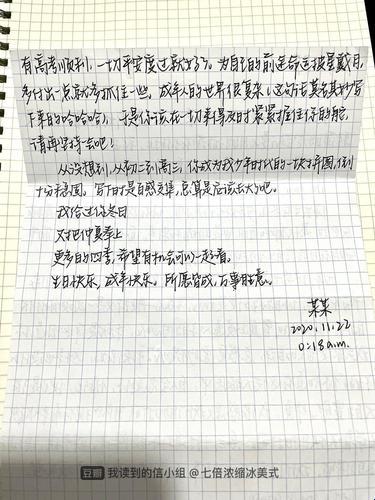 有高考顺利,一切平安度过就好了。为自己的前途命运披星戴月,
多付出一点就多抓住一些,成年人的世界很复杂(这句话莫名其妙写
下来的哈哈哈),于是你应该在一切来得及时紧紧握住你的舵,
请再坚持一会吧!
从没想到,从初三到高三,你成为我少年时代的一块拼图,倒
十分完圆,写下时是百感交集,总算是应该长大了吧。
我给过你冬日
对把仲夏奉上
更多的四季,希望有机会可以一起看。
生日快乐,成年快乐。所愿皆成,万事胜意。
某某
2020.11.22
0:18a.m.
豆瓣 我读到的信小组@七倍浓缩冰美式